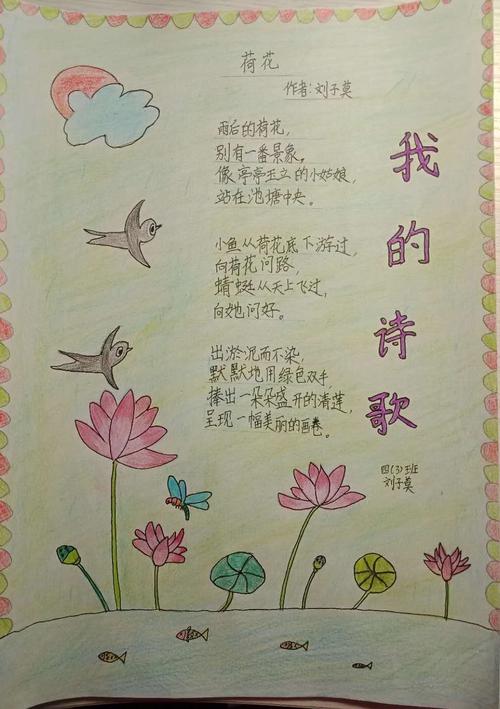 荷花
作者:刘子莫
雨后的荷花,
别有一番景象。
像亭亭玉立的小姑娘,
站在池塘中央。
小鱼从荷花底下游过,
向荷花问路,
蜻蜓从天上飞过,
向她问好。
出淤泥而不染,
默默地用绿色双手,
捧出一朵朵盛开的清莲,
呈现一幅美丽的画卷。
我的诗歌
四(3)班
刘子莫